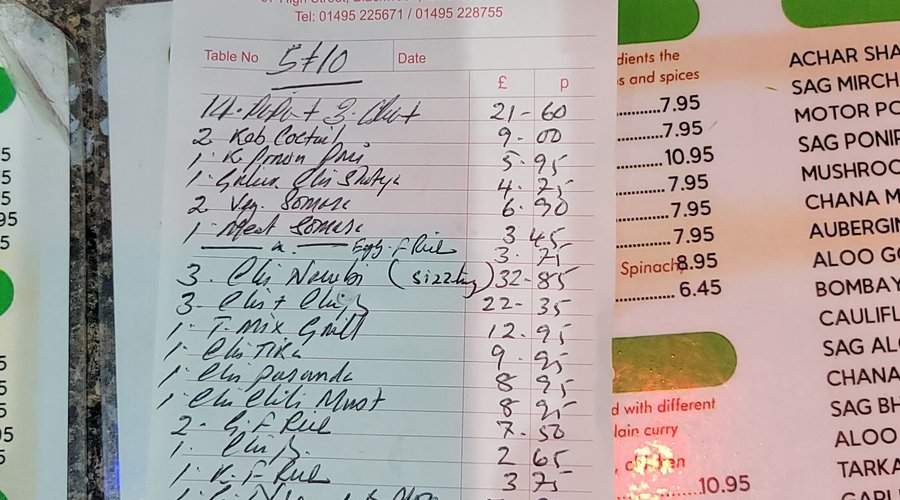 High Street,
Tel: 01495 225671 / 01495 228755
Table No 5+10 Date
£ p
14. 3. 21 - 60
2 Kab Coctail 9. 00
1. K. Prawn Puri 5. 95
1. 4. 25
2 Veg. Somosa 6. 90
1. Meat Somosa 3 45
Egg. F Rice 3. 75
3. Chi Nowabi (sizzling) 32 - 85
3. Chi + Chips 22 - 35
1. T. Mix Grill 12. 95
1. Chi Tika 9. 95
1. Chi Pasanda 8 95
1. Chi Chili 8 95
2 - F Rice 7. 50
1. Chips 2 65
1. K. F Rice 3 75
dients the
s and spices
7.95
7.95
10.95
7.95
7.95
7.95
Spinach 8.95
6.45
d with different
lain curry
10.95
ACHAR SHA
SAG MIRCH
MOTOR PO
SAG PONIR
MUSHROO
CHANA M
AUBERGIN
ALOO GO
BOMBAY
CAULIFL
SAG ALO
CHANA
SAG BH
ALOO
TARKA